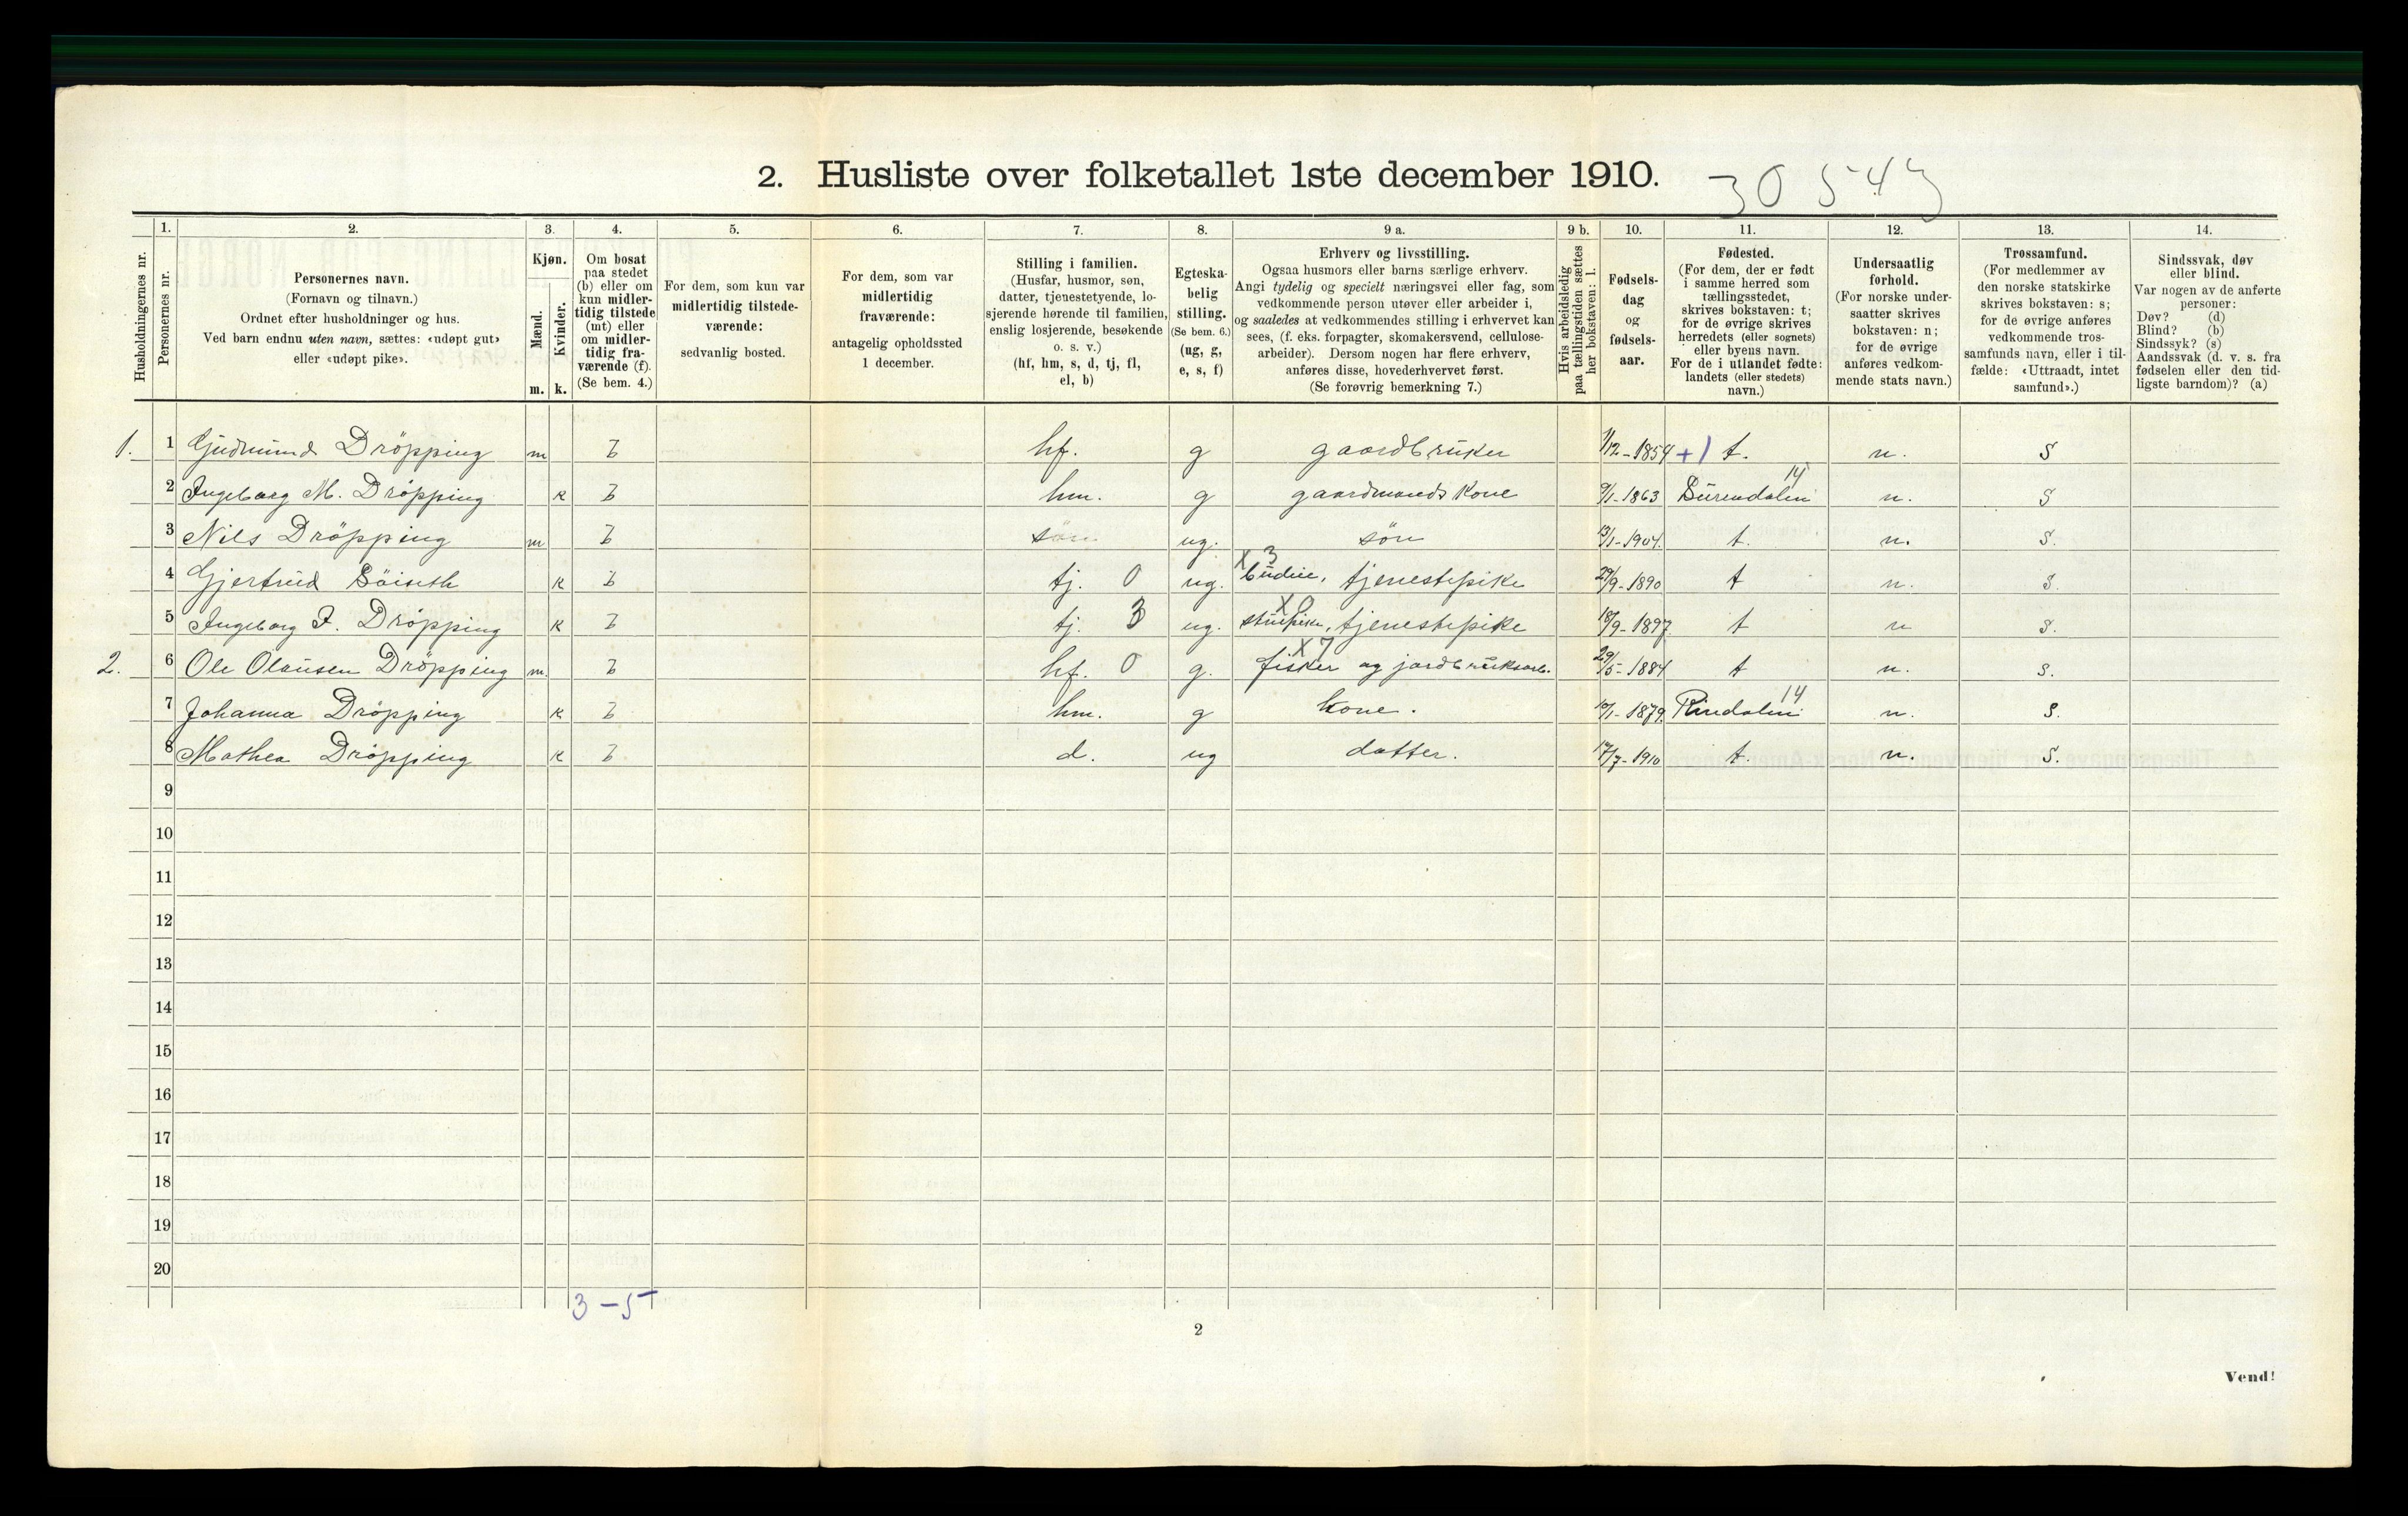 2. Husliste over folketallet 1ste december 1910.
30 543
Husholdningernes nr.
1.
Personernes nr.
2.
Personernes navn.
(Fornavn og tilnavn.)
Ordnet efter husholdninger og hus.
Ved barn endnu uten navn, sættes: «udøpt gut»
eller «udøpt pike».
3.
Kjøn.
Mænd.
Kvinder.
m. k.
4.
Om bosat
paa stedet
(b) eller om
kun midler-
tidig tilstede
(mt) eller
om midler-
tidig fra-
værende (f).
(Se bem. 4.)
5.
For dem, som kun var
midlertidig tilstede-
værende:
sedvanlig bosted.
6.
For dem, som var
midlertidig
fraværende:
antagelig opholdssted
1 december.
7.
Stilling i familien.
(Husfar, husmor, søn,
datter, tjenestetyende, lo-
sjerende hørende til familien,
enslig losjerende, besøkende
o. s. v.)
(hf, hm, s, d, tj, fl,
el, b)
8.
Egteska-
belig
stilling.
(Se bem. 6.)
(ug, g,
e, s, f)
9 a.
Erhverv og livsstilling.
Ogsaa husmors eller barns særlige erhverv.
Angi tydelig og specielt næringsvei eller fag, som
vedkommende person utøver eller arbeider i,
og saaledes at vedkommendes stilling i erhvervet kan
sees, (f. eks. forpagter, skomakersvend, cellulose-
arbeider). Dersom nogen har flere erhverv,
anføres disse, hovederhvervet først.
(Se forøvrig bemerkning 7.)
9 b.
Hvis arbeidsledig
paa tællingstiden sættes
her bokstaven: l.
10.
Fødsels-
dag
og
fødsels-
aar.
11.
Fødested.
(For dem, der er født
i samme herred som
tællingsstedet,
skrives bokstaven: t;
for de øvrige skrives
herredets (eller sognets)
eller byens navn.
For de i utlandet fødte:
landets (eller stedets)
navn.)
12.
Undersaatlig
forhold.
(For norske under-
saatter skrives
bokstaven: n;
for de øvrige
anføres vedkom-
mende stats navn.)
13.
Trossamfund.
(For medlemmer av
den norske statskirke
skrives bokstaven: s;
for de øvrige anføres
vedkommende tros-
samfunds navn, eller i til-
fælde: «Uttraadt, intet
samfund».)
14.
Sindssvak, døv
eller blind.
Var nogen av de anførte
personer:
Døv? (d)
Blind? (b)
Sindssyk? (s)
Aandssvak (d. v. s. fra
fødselen eller den tid-
ligste barndom)? (a)
1. 1 Gudmund Dröpping m b hf. g gaardbruker 1/12-1859 +1 t. n. S
2 Ingeborg M. Dröpping k b hm. g gaardmands kone 9/1-1863 Surendalen 14 n. S
3 Nils Dröpping m b søn ug. søn 13/1-1904. t. n. S.
4 Gjertrud Söiseth k b tj. 0 ug. x 3 budeie, tjenestepike 29/9-1890 t n. S.
5 Ingeborg I. Dröpping k b tj. 3 ug. x 0 stuepike, tjenestepike 18/9-1897. t n S.
2. 6 Ole Olausen Dröpping m. b hf. 0 g. x 7 fisker og jordbruksarb. 29/5-1884 t n. S.
7 Johanna Dröpping k b hm. g kone. 10/1-1879. Rindalen 14 n. S.
8 Mathea Dröpping k b d. ug datter. 17/7-1910 t. n. S.
9
10
11
12
13
14
15
16
17
18
19
20
3-5
2
Vend!